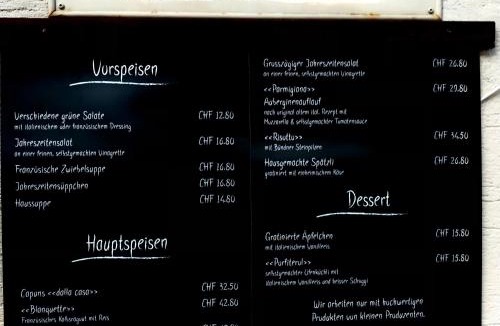 Vorspeisen
Verschiedene grüne Salate CHF 12.80
mit italienischem oder französischem Dressing
Jahreszeitensalat CHF 16.80
an einer feinen, selbstgemachten Vinaigrette
Französische Zwiebelsuppe CHF 16.80
Jahreszeitensüppchen CHF 16.80
Haussuppe CHF 14.80
Hauptspeisen
Capuns «dalla casa» CHF 32.50
«Blanquette» CHF 42.80
Französisches Kalbsragout mit Reis
Grosszügiger Jahreszeitensalat CHF 26.80
an einer feinen, selbstgemachten Vinaigrette
«Parmigiana» CHF 29.80
Auberginenauflauf
nach original altem ital. Rezept mit
Mozzarella & selbstgemachter Tomatensauce
«Risotto» CHF 34.50
mit Bündner Steinpilzen
Hausgemachte Spätzli CHF 26.80
gratiniert mit einheimischem Käse
Dessert
Gratinierte Äpfelchen CHF 15.80
mit italienischem Vanilleeis
CHF 15.80
selbstgemachter mit
italienischem Vanilleeis und heisser Schoggi
Wir arbeiten nur mit hochwertigen
Produkten von kleinen Produzenten.